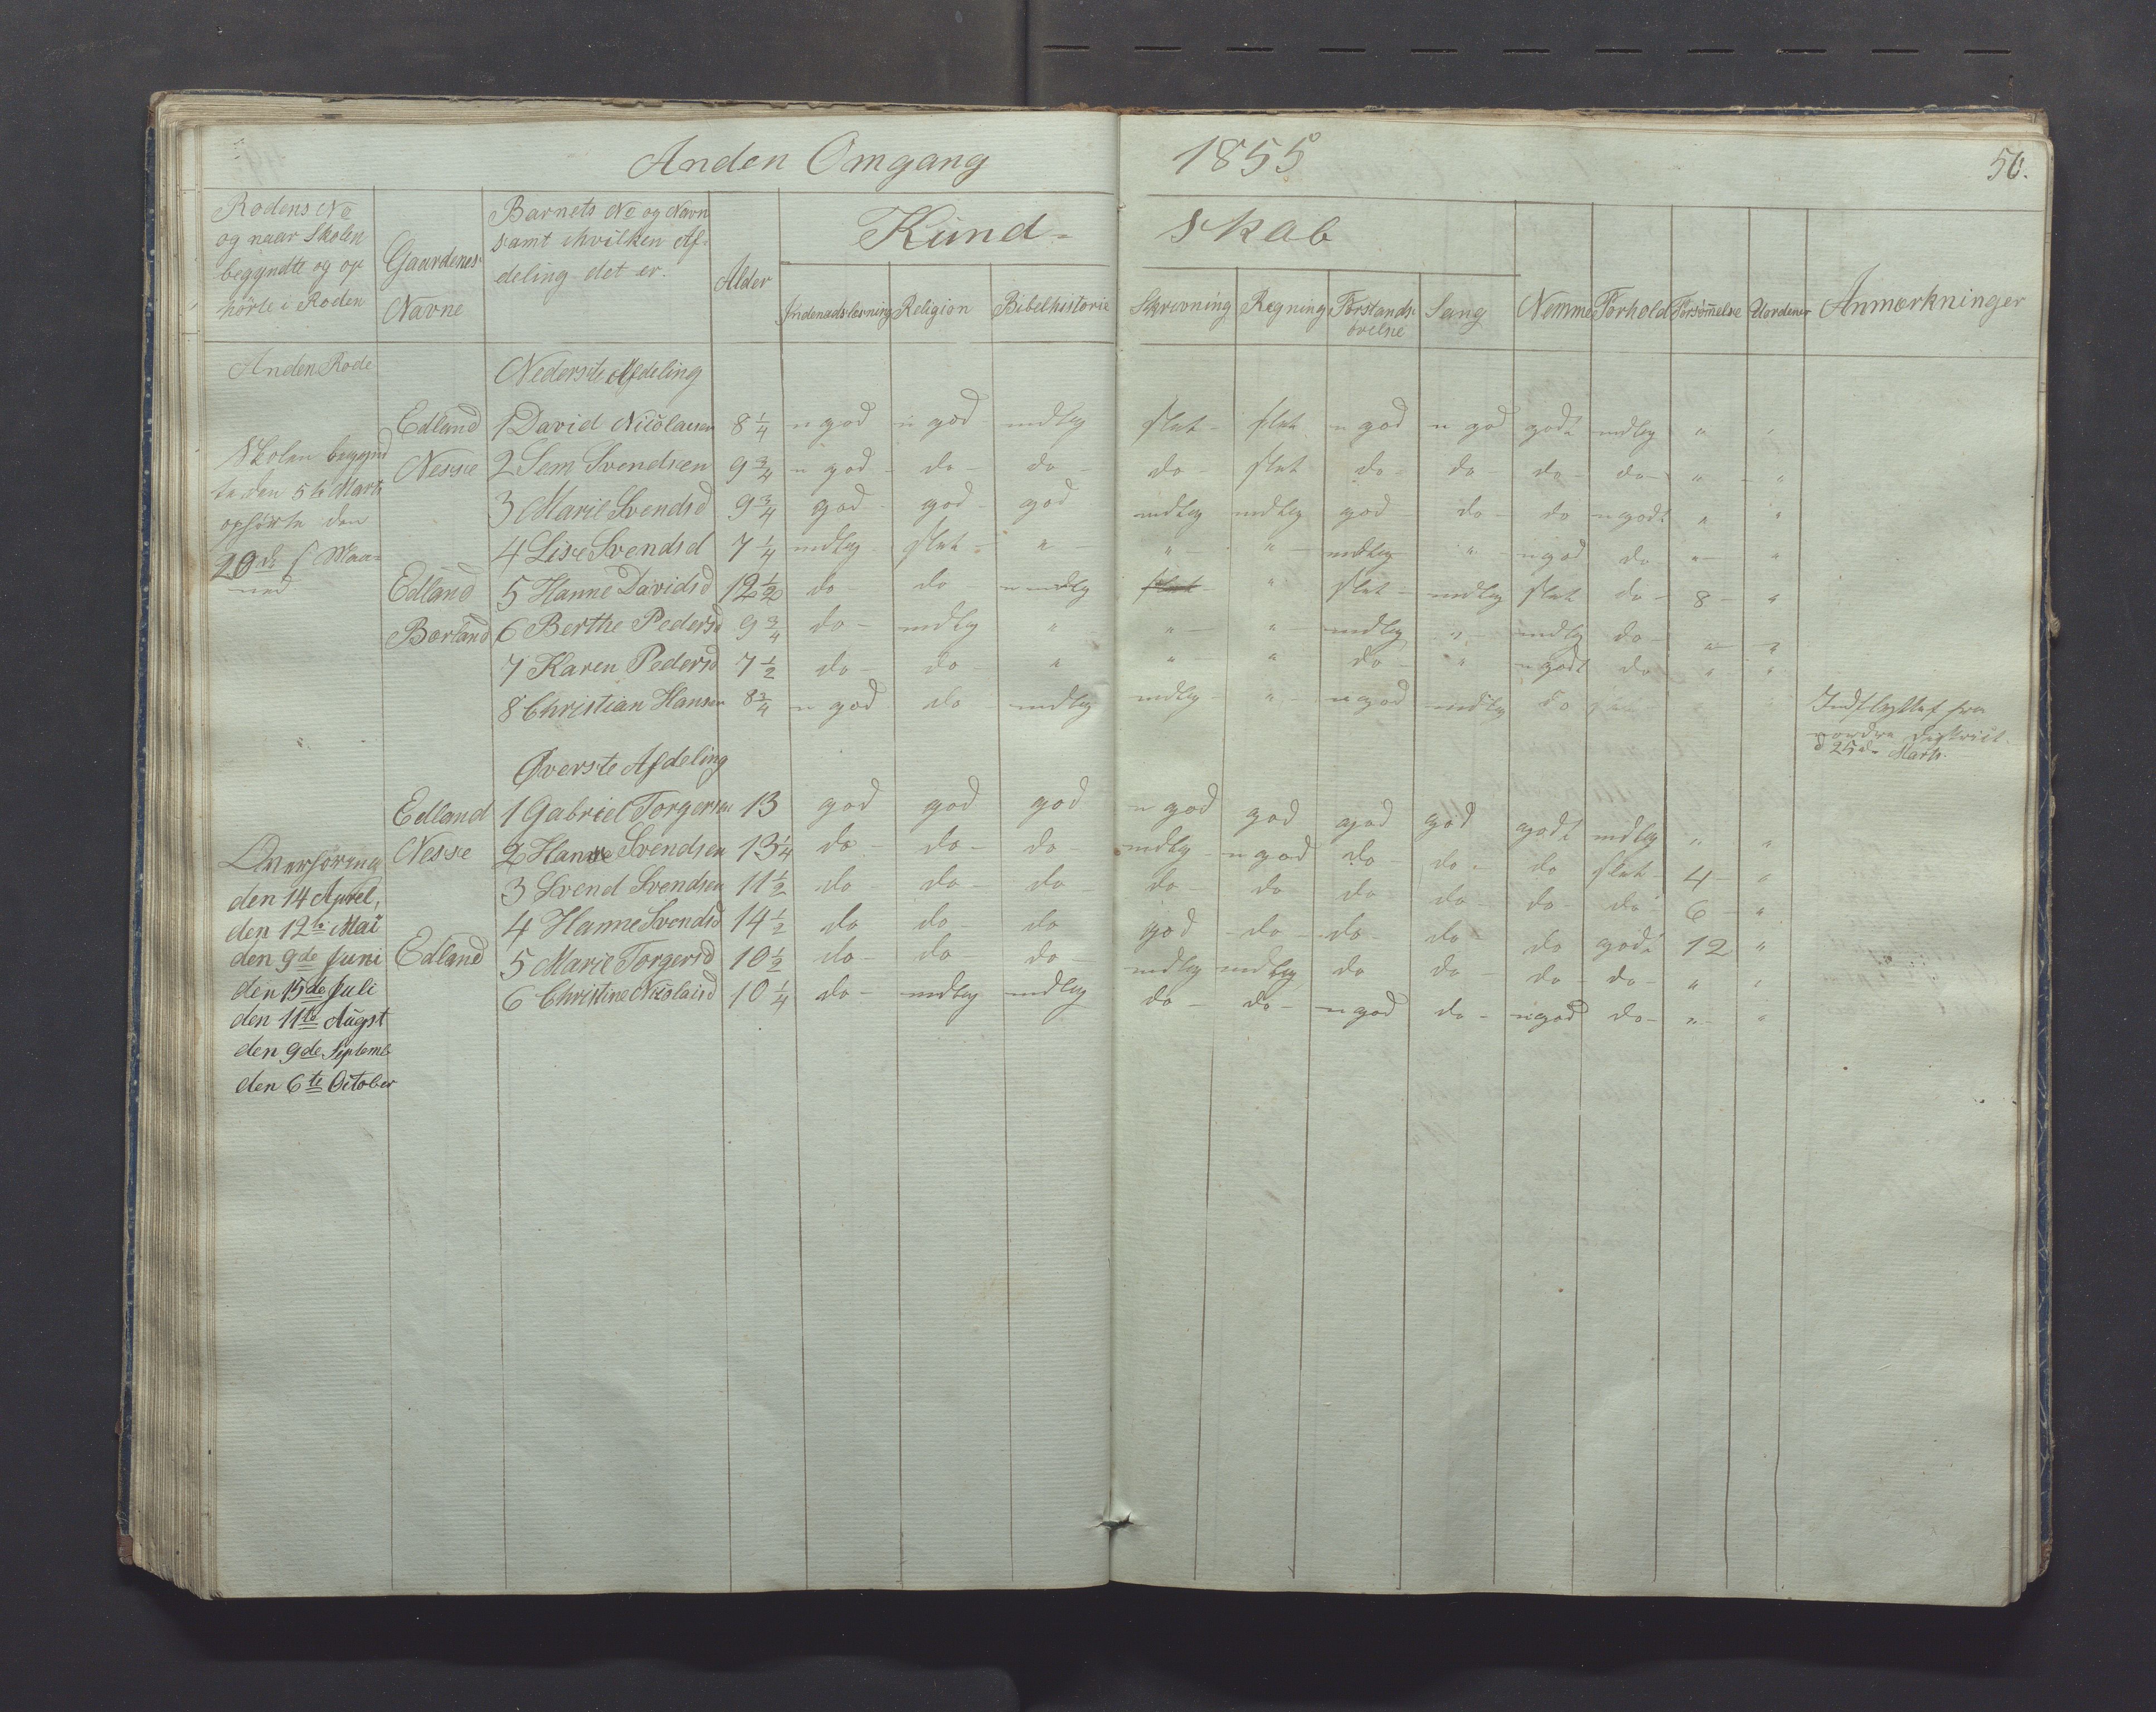 Anden Omgang 1855 50.
Rodens No
og naar Skolen
begyndte og op
hörte i Roden
Gaardenes
Navne
Barnets No og Navn
samt ihvilken Af-
deling det er.
Alder
Kund- skab
Indenadslæsning Religion Bibelhistorie Skrivning Regning Forstands-
övelse
Sang Nemme Forhold Forsömmelse Uordener Anmærkninger
Anden Rode Nederste Afdeling
Edland 1 David Nicolaisen 8 1/4 n god n god mdlg slet slet n god n god godt mdlg " "
Skolen begynd
te den 5te Marts
ophørte den
20de s Maa-
ned
Nesse 2 Sem Svendsen 9 3/4 n god do do do slet do do do do " "
3 Marie Svendsd 9 3/4 god god god mdlg mdlg god do do n godt " "
4 Lise Svendsd 7 1/4 mdlg slet " " " mdlg " n god do " "
Edland 5 Hanne Davidsd 12 1/2 do do n mdlg slet " slet mdlg slet do 8 "
Borland 6 Berthe Pedersd 9 3/4 do mdlg " " " mdlg " mdlg do " "
7 Karen Pedersd 7 1/2 do do " " " do " n godt do " "
8 Christian Hansen 8 3/4 n god do mdlg mdlg " n god mdlg do
Indflyttet fra
nordre District
d 25de Marts.
Øverste Afdeling
Edland 1 Gabriel Torgersen 13 god god god n god god god god godt mdlg " "
Nesse 2 Hans Svendsen 13 1/4 do do do mdlg n god do do do slet 4 "
3 Svend Svendsen 11 1/2 do do do do do do do do do 6 "
4 Hanne Svendsd 14 1/2 do do do god do do do do godt 12 "
Edland 5 Marie Torgersd 10 1/2 do do do mdlg mdlg do do do do " "
6 Christine Nicolaisd 10 1/4 do mdlg mdlg do do n god do n god do " "
den 14 April,
den 12te Mai
den 9de Juni
den 15de Juli
den 11te Augst
den 9de Septemb
den 6te October